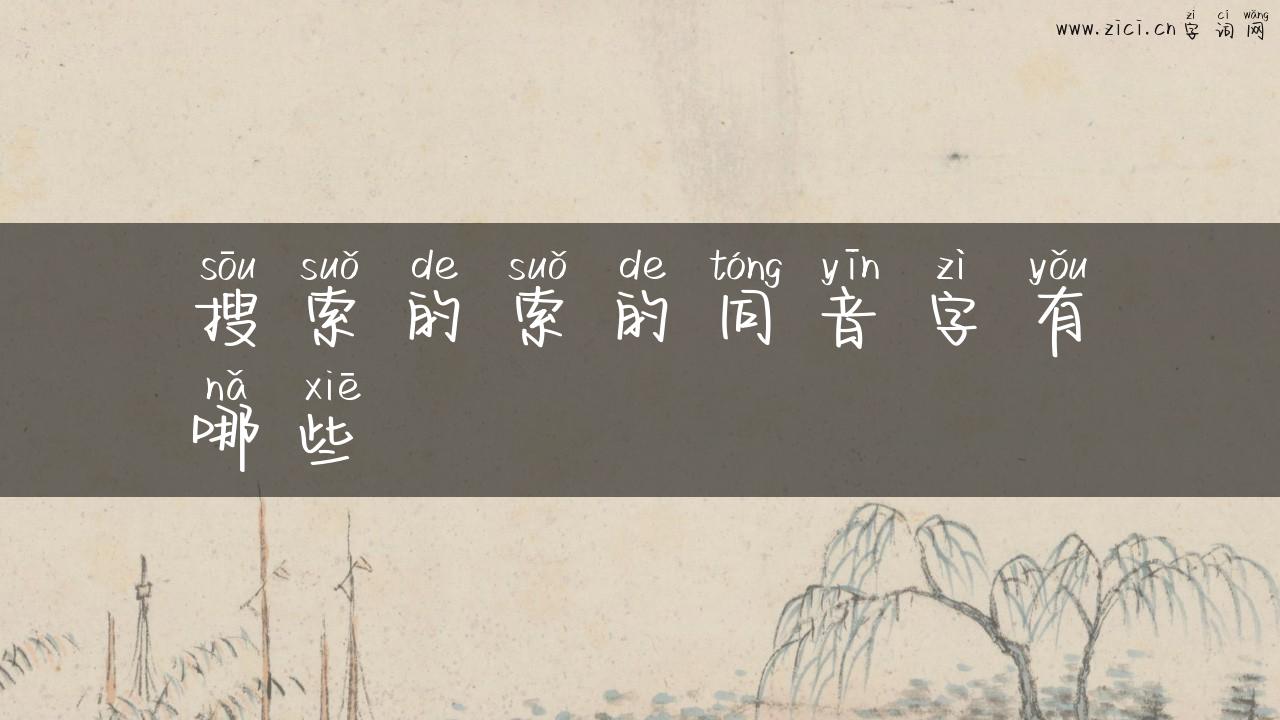 zì cí wǎng
www.zici.cn 字 词 网
sōu suǒ de suǒ de tóng yīn zì yǒu
搜 索 的 索 的 同 音 字 有
nǎ xiē
哪 些